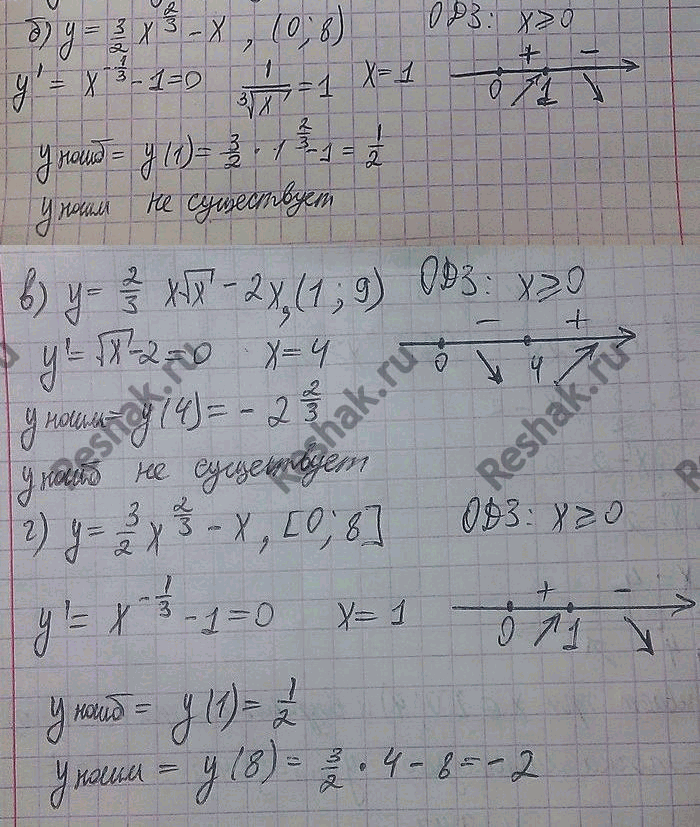 б) y = 3/2 x^(2/3) - x, (0; 8) ОДЗ: x ≥ 0
y' = x^(-1/3) - 1 = 0 1/∛x = 1 x = 1 + -
0 1
y наиб = y(1) = 3/2 · 1^(2/3) - 1 = 1/2
y наим не существует
в) y = 2/3 x√x - 2x, (1; 9) ОДЗ: x ≥ 0
y' = √x - 2 = 0 x = 4 - +
0 4
y наим = y(4) = - 2 2/3
y наиб не существует
г) y = 3/2 x^(2/3) - x, [0; 8] ОДЗ: x ≥ 0
y' = x^(-1/3) - 1 = 0 x = 1 + -
0 1
y наиб = y(1) = 1/2
y наим = y(8) = 3/2 · 4 - 8 = -2
Reshak.ru
Reshak.ru
Reshak.ru